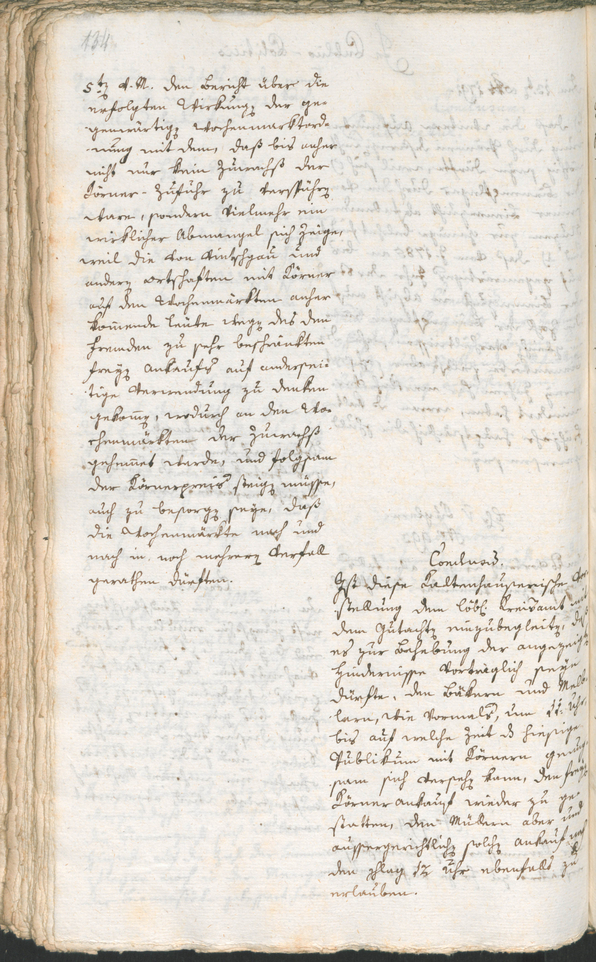 134.
5ten d. M. den Bericht über die
erfolgten Wirkungen der ge-
genwärtigen Wochenmarktord-
nung mit dem, daß bis anher
nicht nur kein Zuwachß der
Körner-Zufuhr zu verspühren
ware, sondern vielmehr ein
wirklicher Abmangel sich zeige,
weil die von Vintschgau und
andern ortschaften mit Körner
auf den Wochenmärkten anher
komende leüte wegen des den
fremden zu sehr beschränkten
freyen Ankaufs auf anderwei-
tige Verwendung zu denken
gekomen, wodurch an den Wo-
chenmärkten der Zuwachß
gehemmet werde, und folgsam
der Körnerpreis steigen müsse,
auch zu besorgen seye, daß
die Wochenmärkte nach und
nach in noch mehreren Verfall
gerathen dürften.
Conclusum.
Ist diese Kaltenhauserische Vor-
stellung dem löbl. Kreisamt mit
dem Gutachten einzubegleiten, daß
es zur Behebung der angezeigten
Hindernisse vorträglich seye
dürfte, den Bäkern und Melb-
lern, wie vormals, um 11. Uhr,
bis auf welche Zeit das hiesige
Publikum mit Körnern genug-
sam sich versehen kann, den freyen
Körner ankauf wieder zu ge-
statten, den Müllern aber und
aussergerichtlichen solchen ankauf nach
den schlag 12 Uhr ebenfalls zu
erlauben.